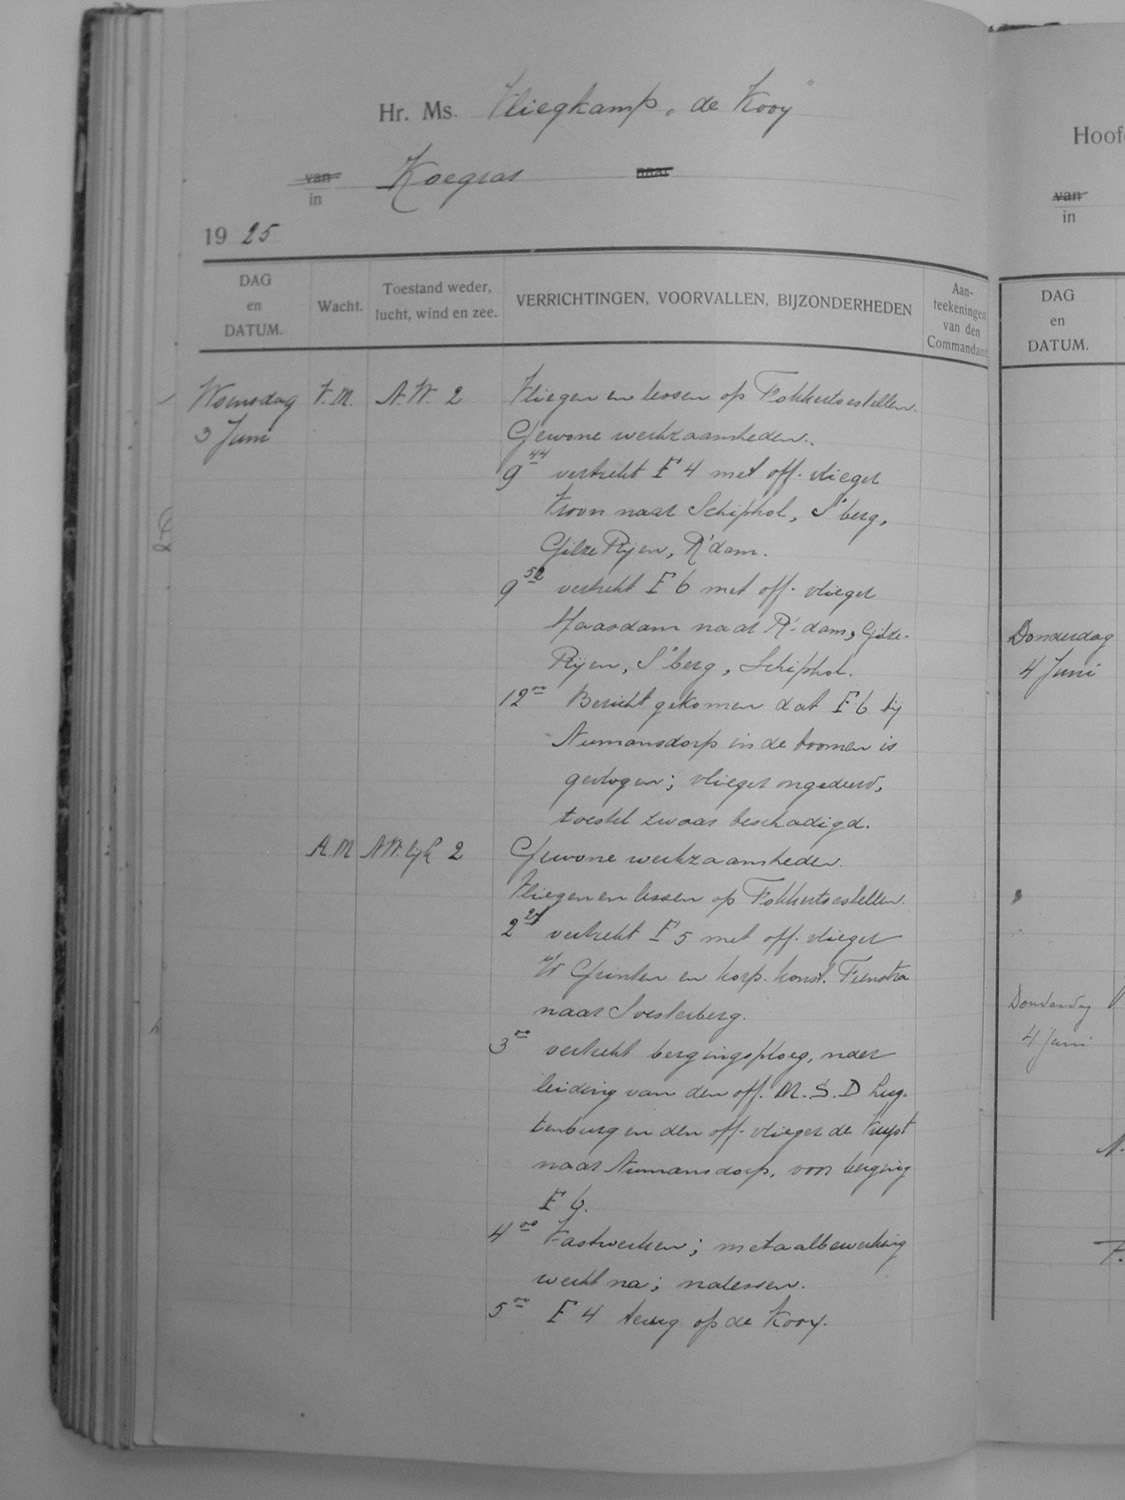 Hr. Ms. Vliegkamp „de Kooy"
van
in
Koegras
naar
1925
DAG
en
DATUM.
Wacht.
Toestand weder,
lucht, wind en zee.
VERRICHTINGEN, VOORVALLEN, BIJZONDERHEDEN
Aan-
teekeningen
van den
Commandant
Woensdag V.M. N.W. 2 Vliegen en lessen op Fokkertoestellen.
3 Juni Gewone werkzaamheden.
9 44 vertrekt F 4 met off. vlieger
Kroon naar Schiphol, S'berg,
Gilze Rijen, R'dam.
9 52 vertrekt F 6 met off. vlieger
Haasdam naar R'dam, Gilze-
Rijen, S'berg, Schiphol.
12 00 Bericht gekomen dat F 6 bij
Numansdorp in de boomen is
gevlogen; vlieger ongedeerd,
toestel zwaar beschadigd.
A.M N.W. 2 Gewone werkzaamheden.
Vliegen en lessen op Fokkertoestellen.
2 27 vertrekt F 5 met off. vlieger
en korp. konst. Feenstra
naar Soesterberg.
3 00 vertrekt bergingsploeg, onder
leiding van den off. M.S.D Lug-
tenburg en den off. vlieger de
naar Numansdorp, voor berging
F 6.
4 00 Vastwerken; metaalbewerking
werkt na; nalessen.
5 00 F 4 terug op de Kooy.
Hoof
van
in
DAG
en
DATUM.
Donderdag
4 Juni
Donderdag
4 Juni